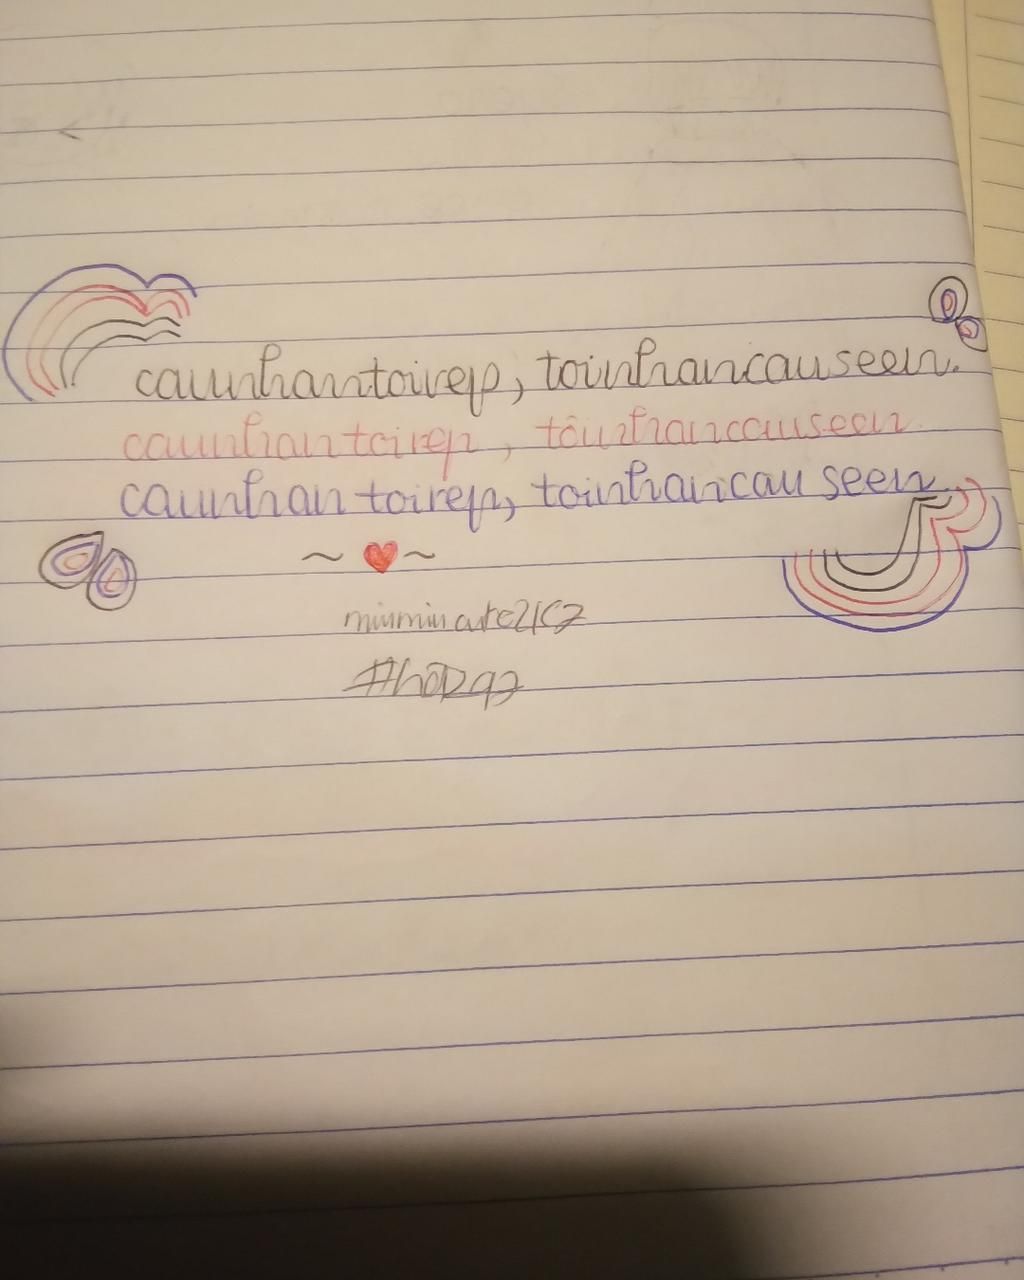 caunhantoirep, toinhancauseen.
caunhantoirep, toinhancauseen.
caunhan toirep, toinhancau seen
~ ♥ ~